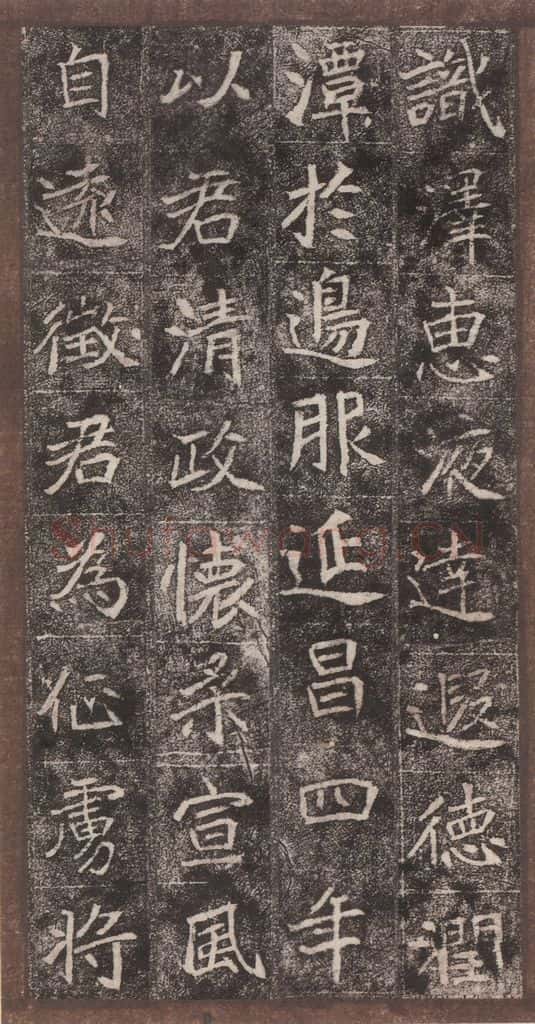 識澤惠液達遐德潤
潭於邊服延昌四年
以君清政懷柔宣風
自遠徵君為征虜將
shufawang.CN